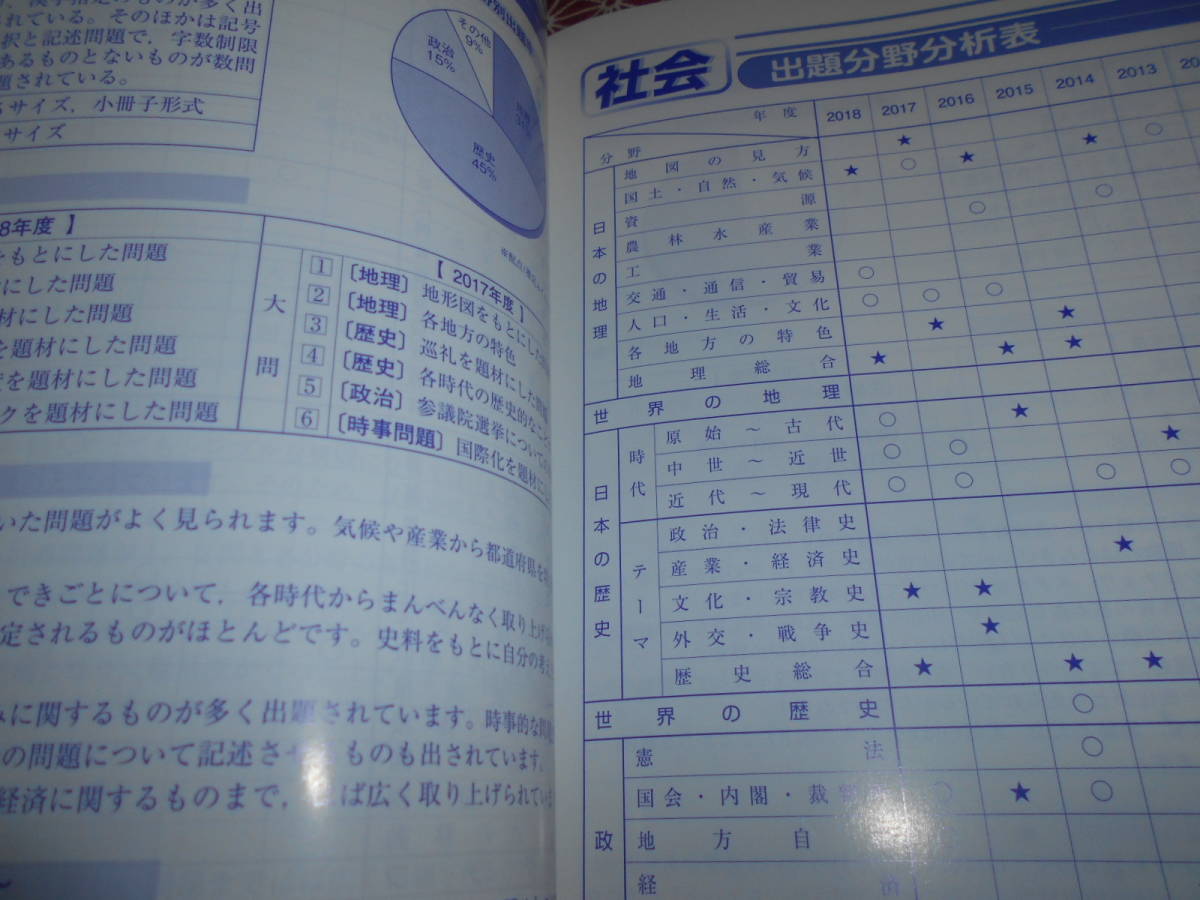 れている。そのほかは記号
択と記述問題で，字数制限
あるものとないものが数問
題されている。
サイズ，小冊子形式
サイズ
その他
9%
政治
15%
歴史
45%
8年度 】
をもとにした問題
にした問題
材にした問題
を題材にした問題
を題材にした問題
クを題材にした問題
大問
【 2017年度 】
1 〔地理〕 地形図をもとにした
2 〔地理〕 各地方の特色
3 〔歴史〕 巡礼を題材にした
4 〔歴史〕 各時代の歴史的な
5 〔政治〕 参議院選挙について
6 〔時事問題〕 国際化を題材に
いた問題がよく見られます。気候や産業から都道府県を
できごとについて，各時代からまんべんなく取り上げ
定されるものがほとんどです。史料をもとに自分の考
みに関するものが多く出題されています。時事的な問題
の問題について記述させ ものも出されています。
経済に関するものまで， ば広く取り上げられてい
社会 出題分野分析表
分野 年度 2018 2017 2016 2015 2014 2013
日本の地理
地図の見方 ★ ★ ○
国土・自然・気候 ★ ○ ★
資源 ○
農林水産業 ○
工業
交通・通信・貿易 ○
人口・生活・文化 ○ ○ ○
各地方の特色 ★ ★
地理総合 ★ ★ ★
世界の地理
日本の歴史
時代
原始～古代 ○ ★
中世～近世 ○ ○ ★
近代～現代 ○ ○ ○ ○
テーマ
政治・法律史
産業・経済史 ★
文化・宗教史 ★ ★
外交・戦争史 ★
歴史総合 ★ ★ ★
世界の歴史 ○
政
憲法 ○
国会・内閣・裁 ○ ★ ○
地方自
経済